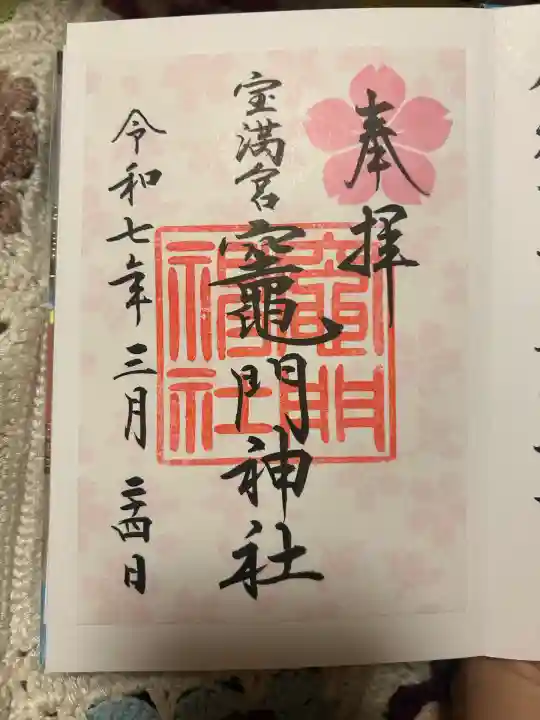 奉拝
宝満宮
竈門神社
令和七年三月二十四日
竈門
神社